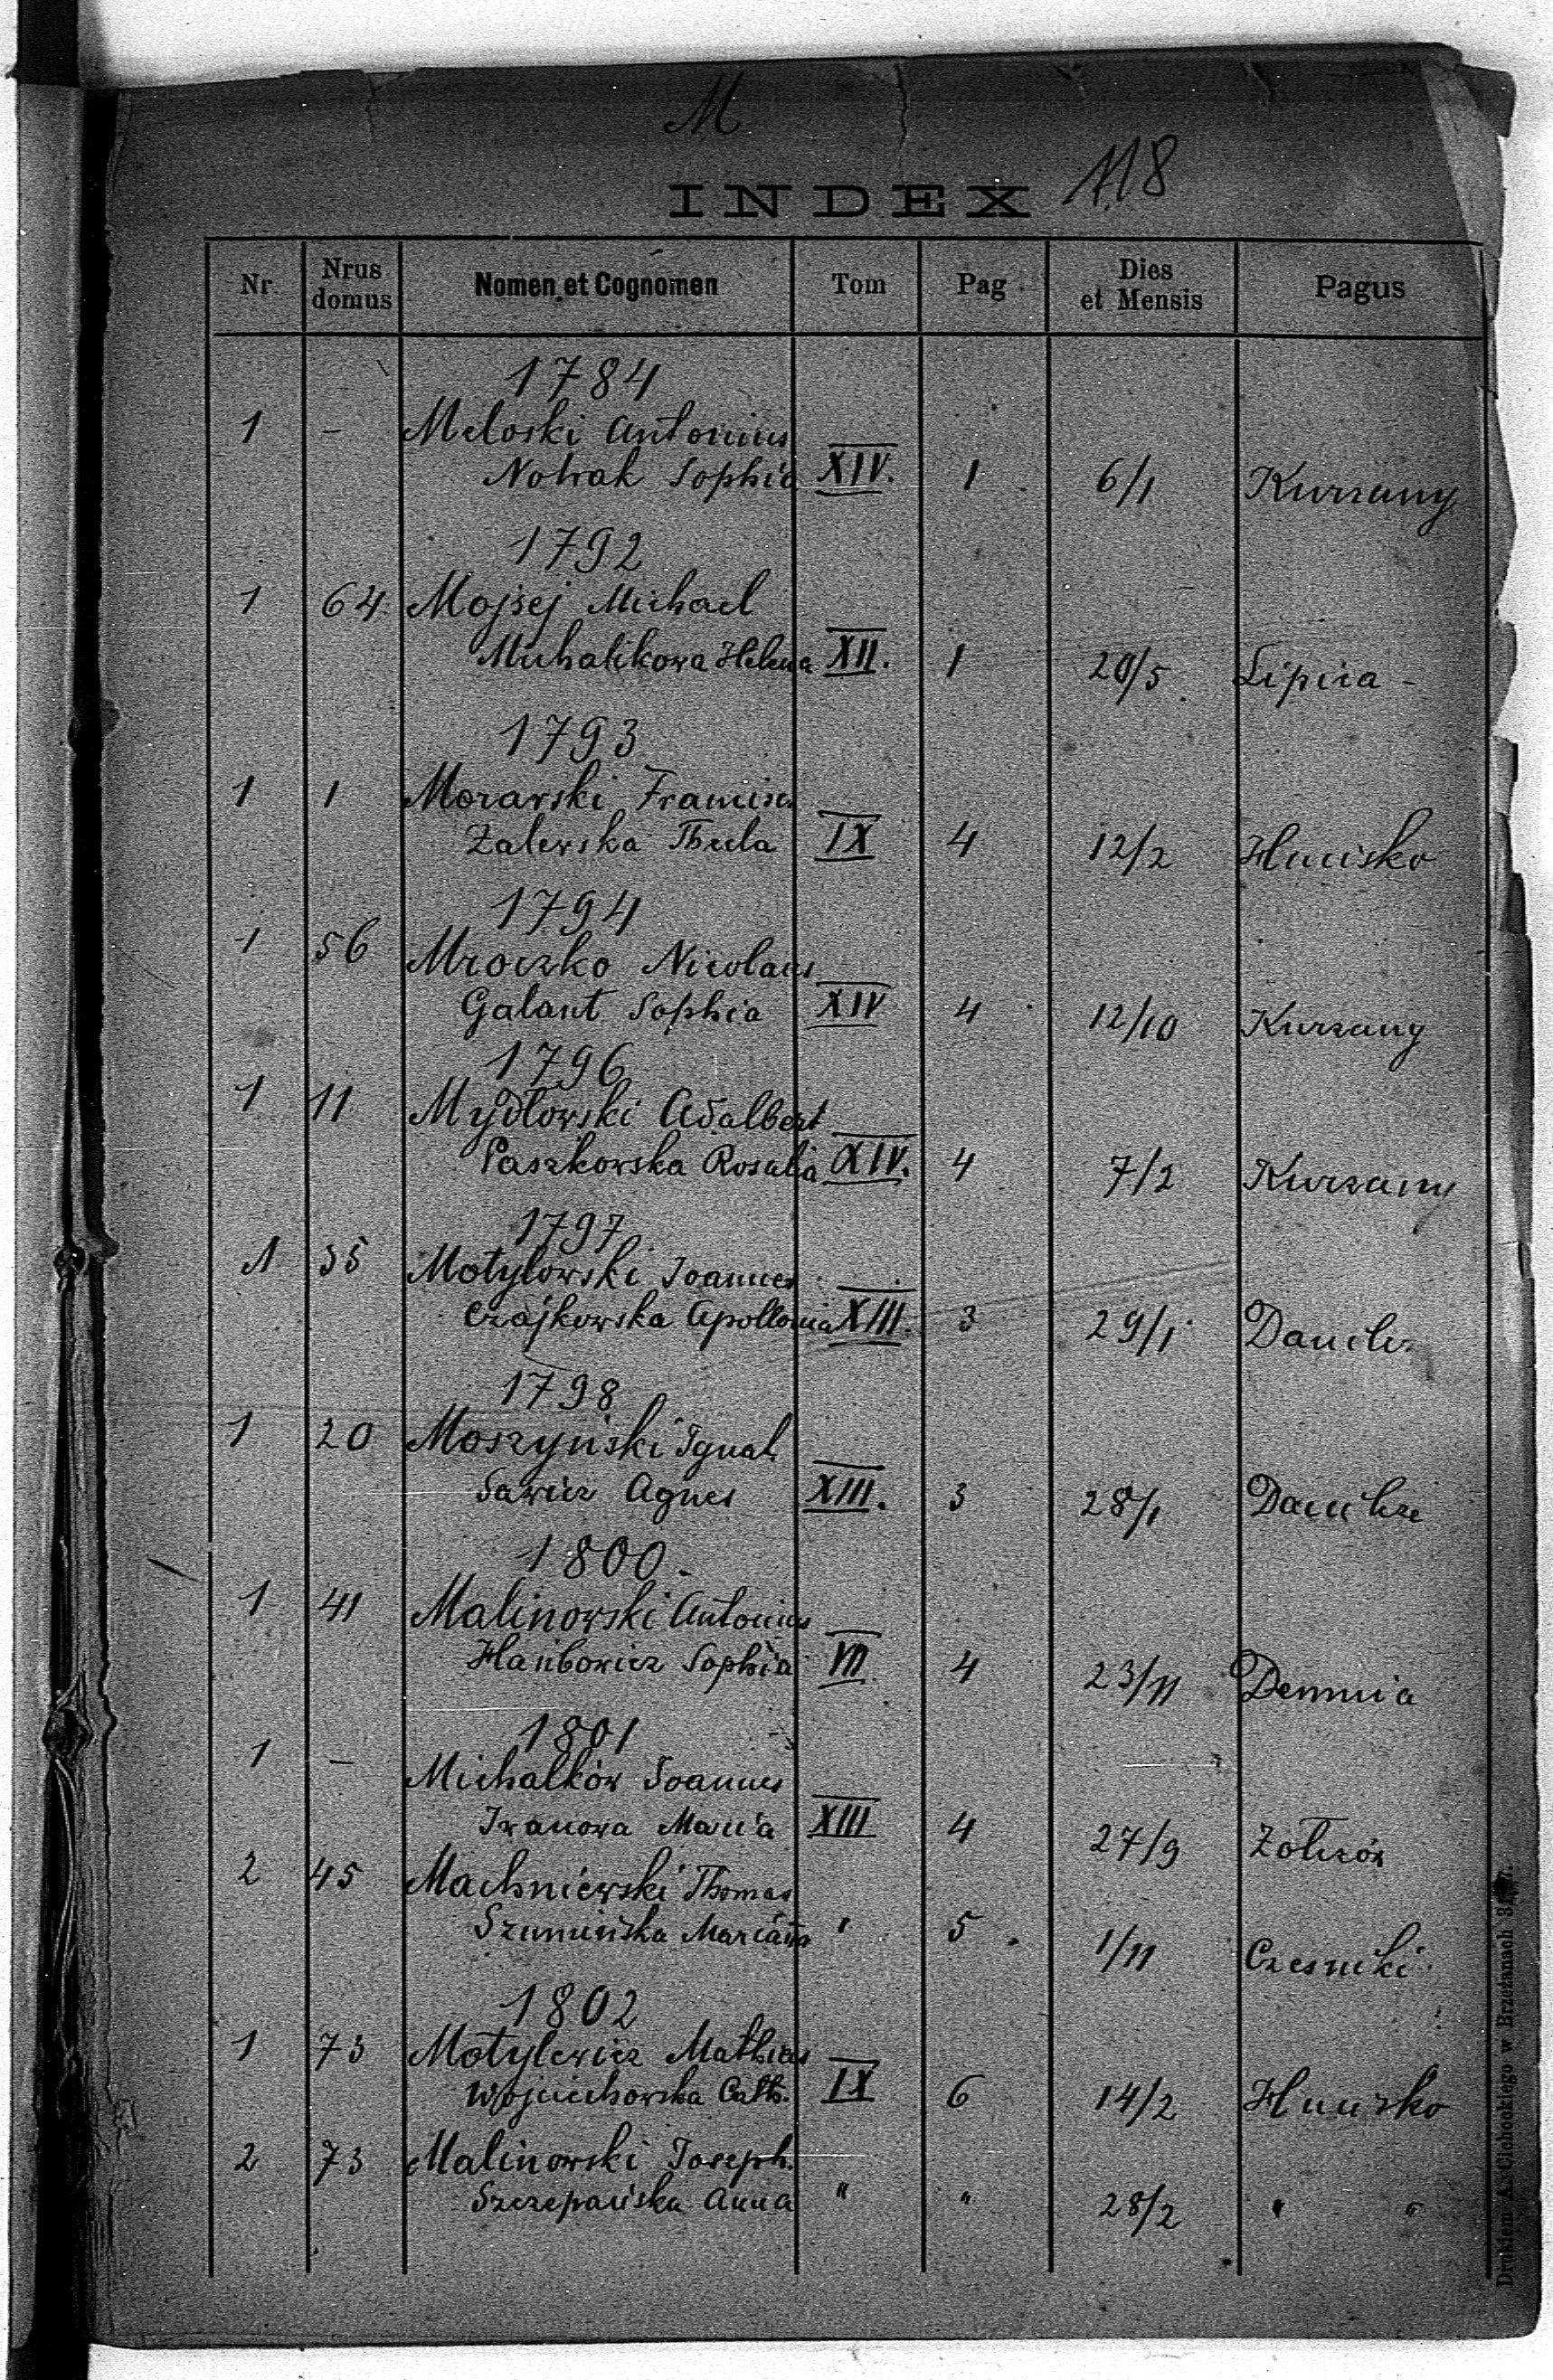 M
INDEX 118
Nr. Nrus domus Nomen et Cognomen Tom Pag Dies et Mensis Pagus
1784
1 - Meloski Antonius
Nowak Sophia XIV. 1 6/1 Kurzany
1792
1 64 Mojsej Michael
Michalikowa Helena XII. 1 20/5 Lipica -
1793
1 1 Morawski Francisc.
Zalewska Thecla IX 4 12/2 Hucisko
1794
1 56 Mroczko Nicolaus
Galant Sophia XIV 4 12/10 Kurzany
1796
1 11 Mydłowski Adalbert
Paszkowska Rosalia XIV. 4 7/2 Kurzany
1797
1 35 Motylowski Joannes
Czajkowska Apollonia XIII. 3 29/1
1798
1 20 Moszyński Ignat.
Sawicz Agnes XIII. 3 28/1
1800.
1 41 Malinowski Antonius
Hańbowicz Sophia VII 4 23/11 Demnia
1801
1 - Michalków Joannes
Iwanowa Maria XIII 4 27/9 Żołczów
2 45 Machniewski Thomas
Szumińska Marianna " 5. 1/11 Czesniki
1802
1 73 Motylewicz Mathias
Wojciechowska Cath. IX 6 14/2 Hucisko
2 73 Malinowski Joseph.
Szczepańska Anna " " 28/2 " "
Drukiem A. Cichockiego w Brzeżanach